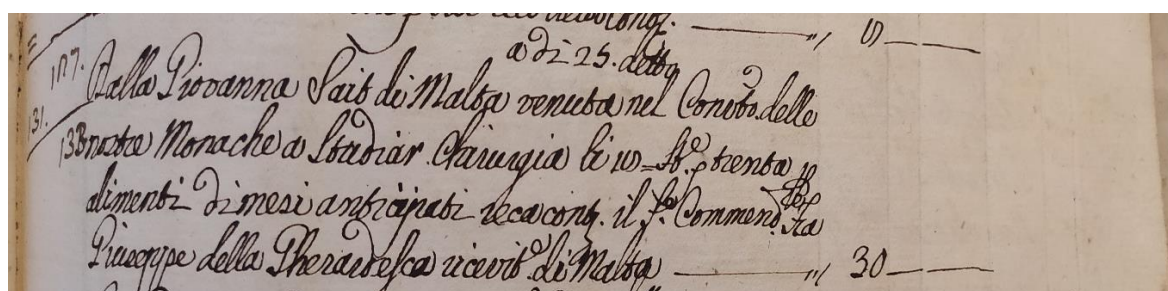 a dì 25. detto
107. Dalla Giovanna Sait di Malta venuta nel Convto. delle
131.
133 nostre Monache a Studiar Chirurgia li 10 = Sto. p trenta
alimenti di mesi anticipati reca cont. il Sr. Commendr. fra
Giuseppe della Gherardesca ricevitr. di Malta ——— " 30 — —